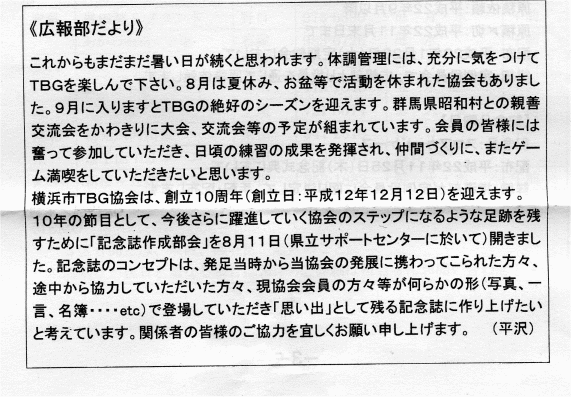 《広報部だより》
これからもまだまだ暑い日が続くと思われます。体調管理には、充分に気をつけて
TBGを楽しんで下さい。8月は夏休み、お盆等で活動を休まれた協会もありまし
た。9月に入りますとTBGの絶好のシーズンを迎えます。群馬県昭和村との親善
交流会をかわきりに大会、交流会等の予定が組まれています。会員の皆様には
奮って参加していただき、日頃の練習の成果を発揮され、仲間づくりに、またゲー
ム満喫をしていただきたいと思います。
横浜市TBG協会は、創立10周年(創立日:平成12年12月12日)を迎えます。
10年の節目として、今後さらに躍進していく協会のステップになるような足跡を残
すために「記念誌作成部会」を8月11日(県立サポートセンターに於いて)開きまし
た。記念誌のコンセプトは、発足当時から当協会の発展に携わってこられた方々、
途中から協力していただいた方々、現協会会員の方々等が何らかの形(写真、一
言、名簿・・・・etc)で登場していただき「思い出」として残る記念誌に作り上げたい
と考えています。関係者の皆様のご協力を宜しくお願い申し上げます。　(平沢)